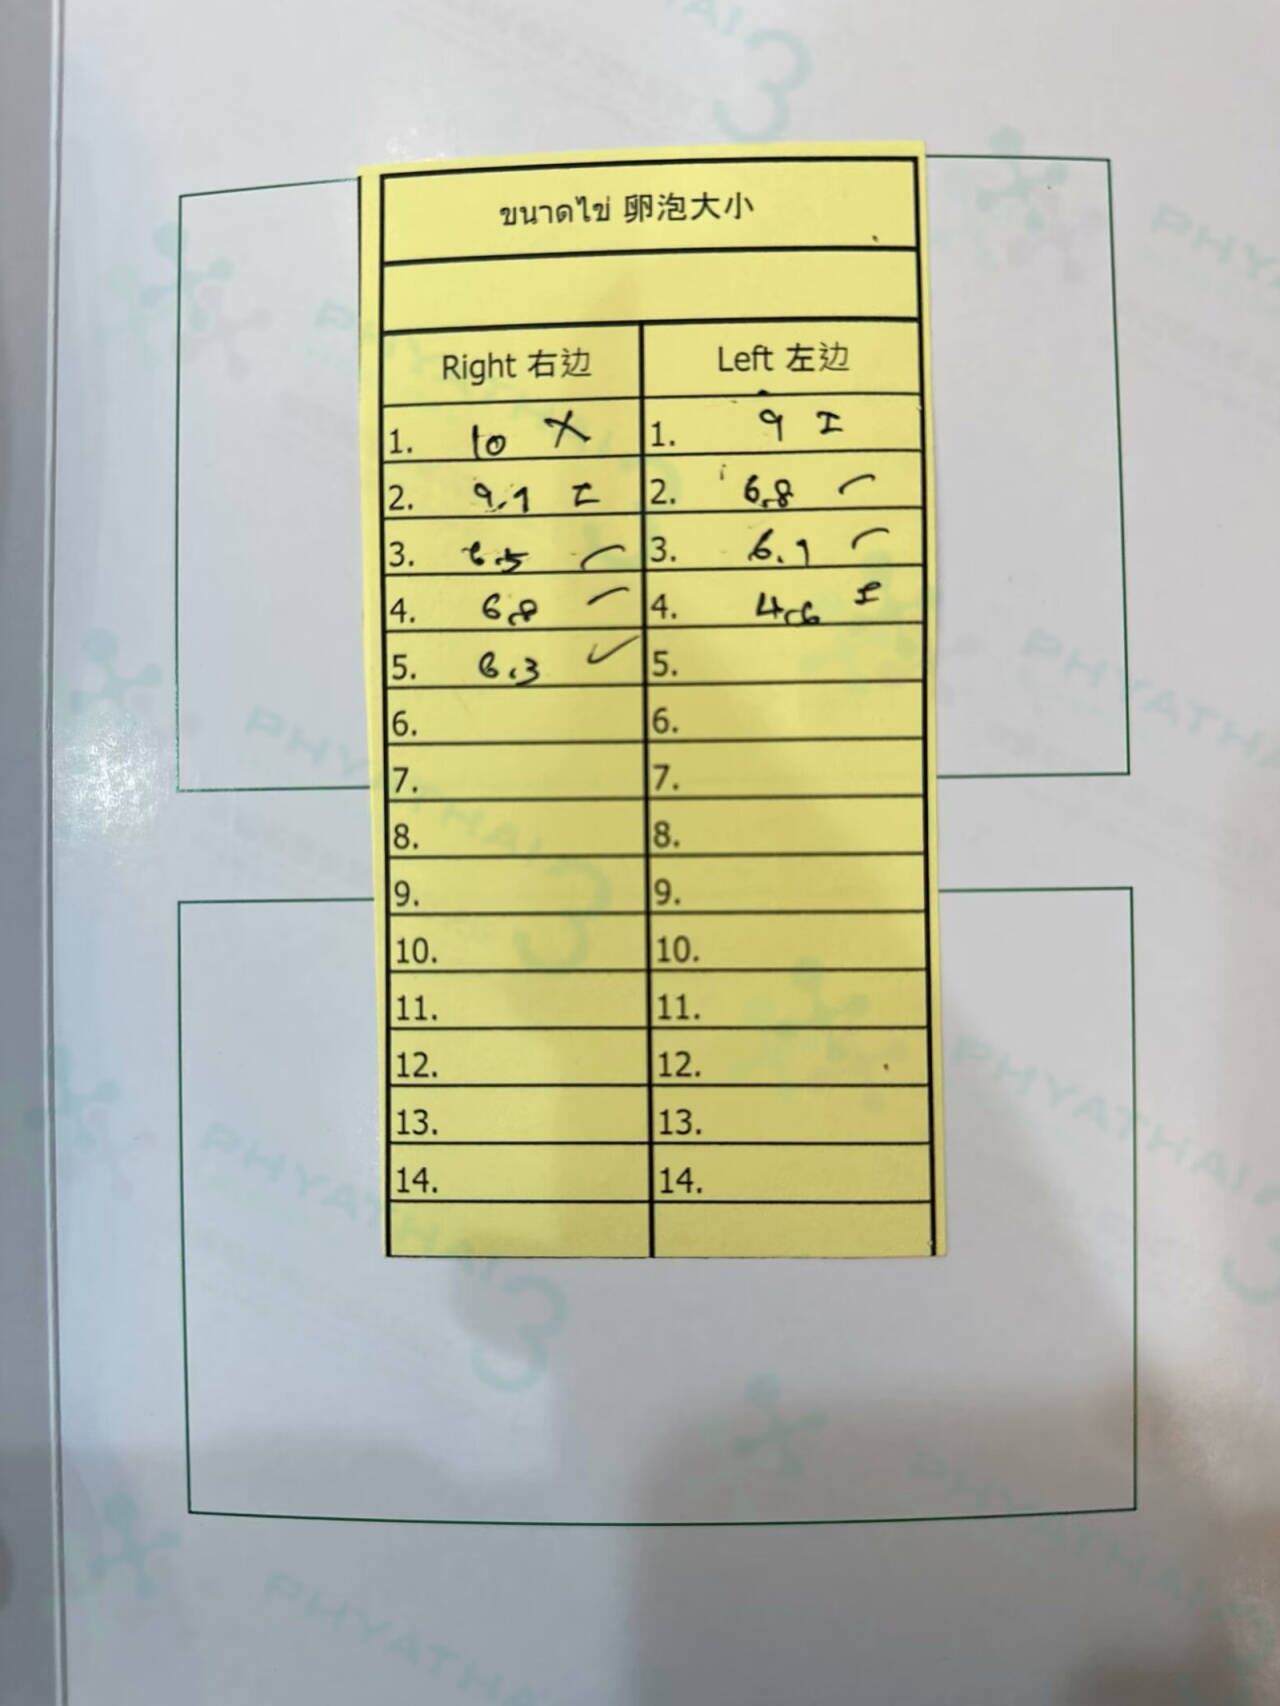 ขนาดไข่ 卵泡大小
Right 右边 Left 左边
1. 10 X 1. 9 I
2. 9.1 I 2. 6.8
3. 6.5 3. 6.1
4. 6.8 4. 4.6 I
5. 6.3 ✓ 5.
6. 6.
7. 7.
8. 8.
9. 9.
10. 10.
11. 11.
12. 12.
13. 13.
14. 14.
PHYATHAI 3
PHYATHAI 3
PHYATHAI 3
PHYATHAI